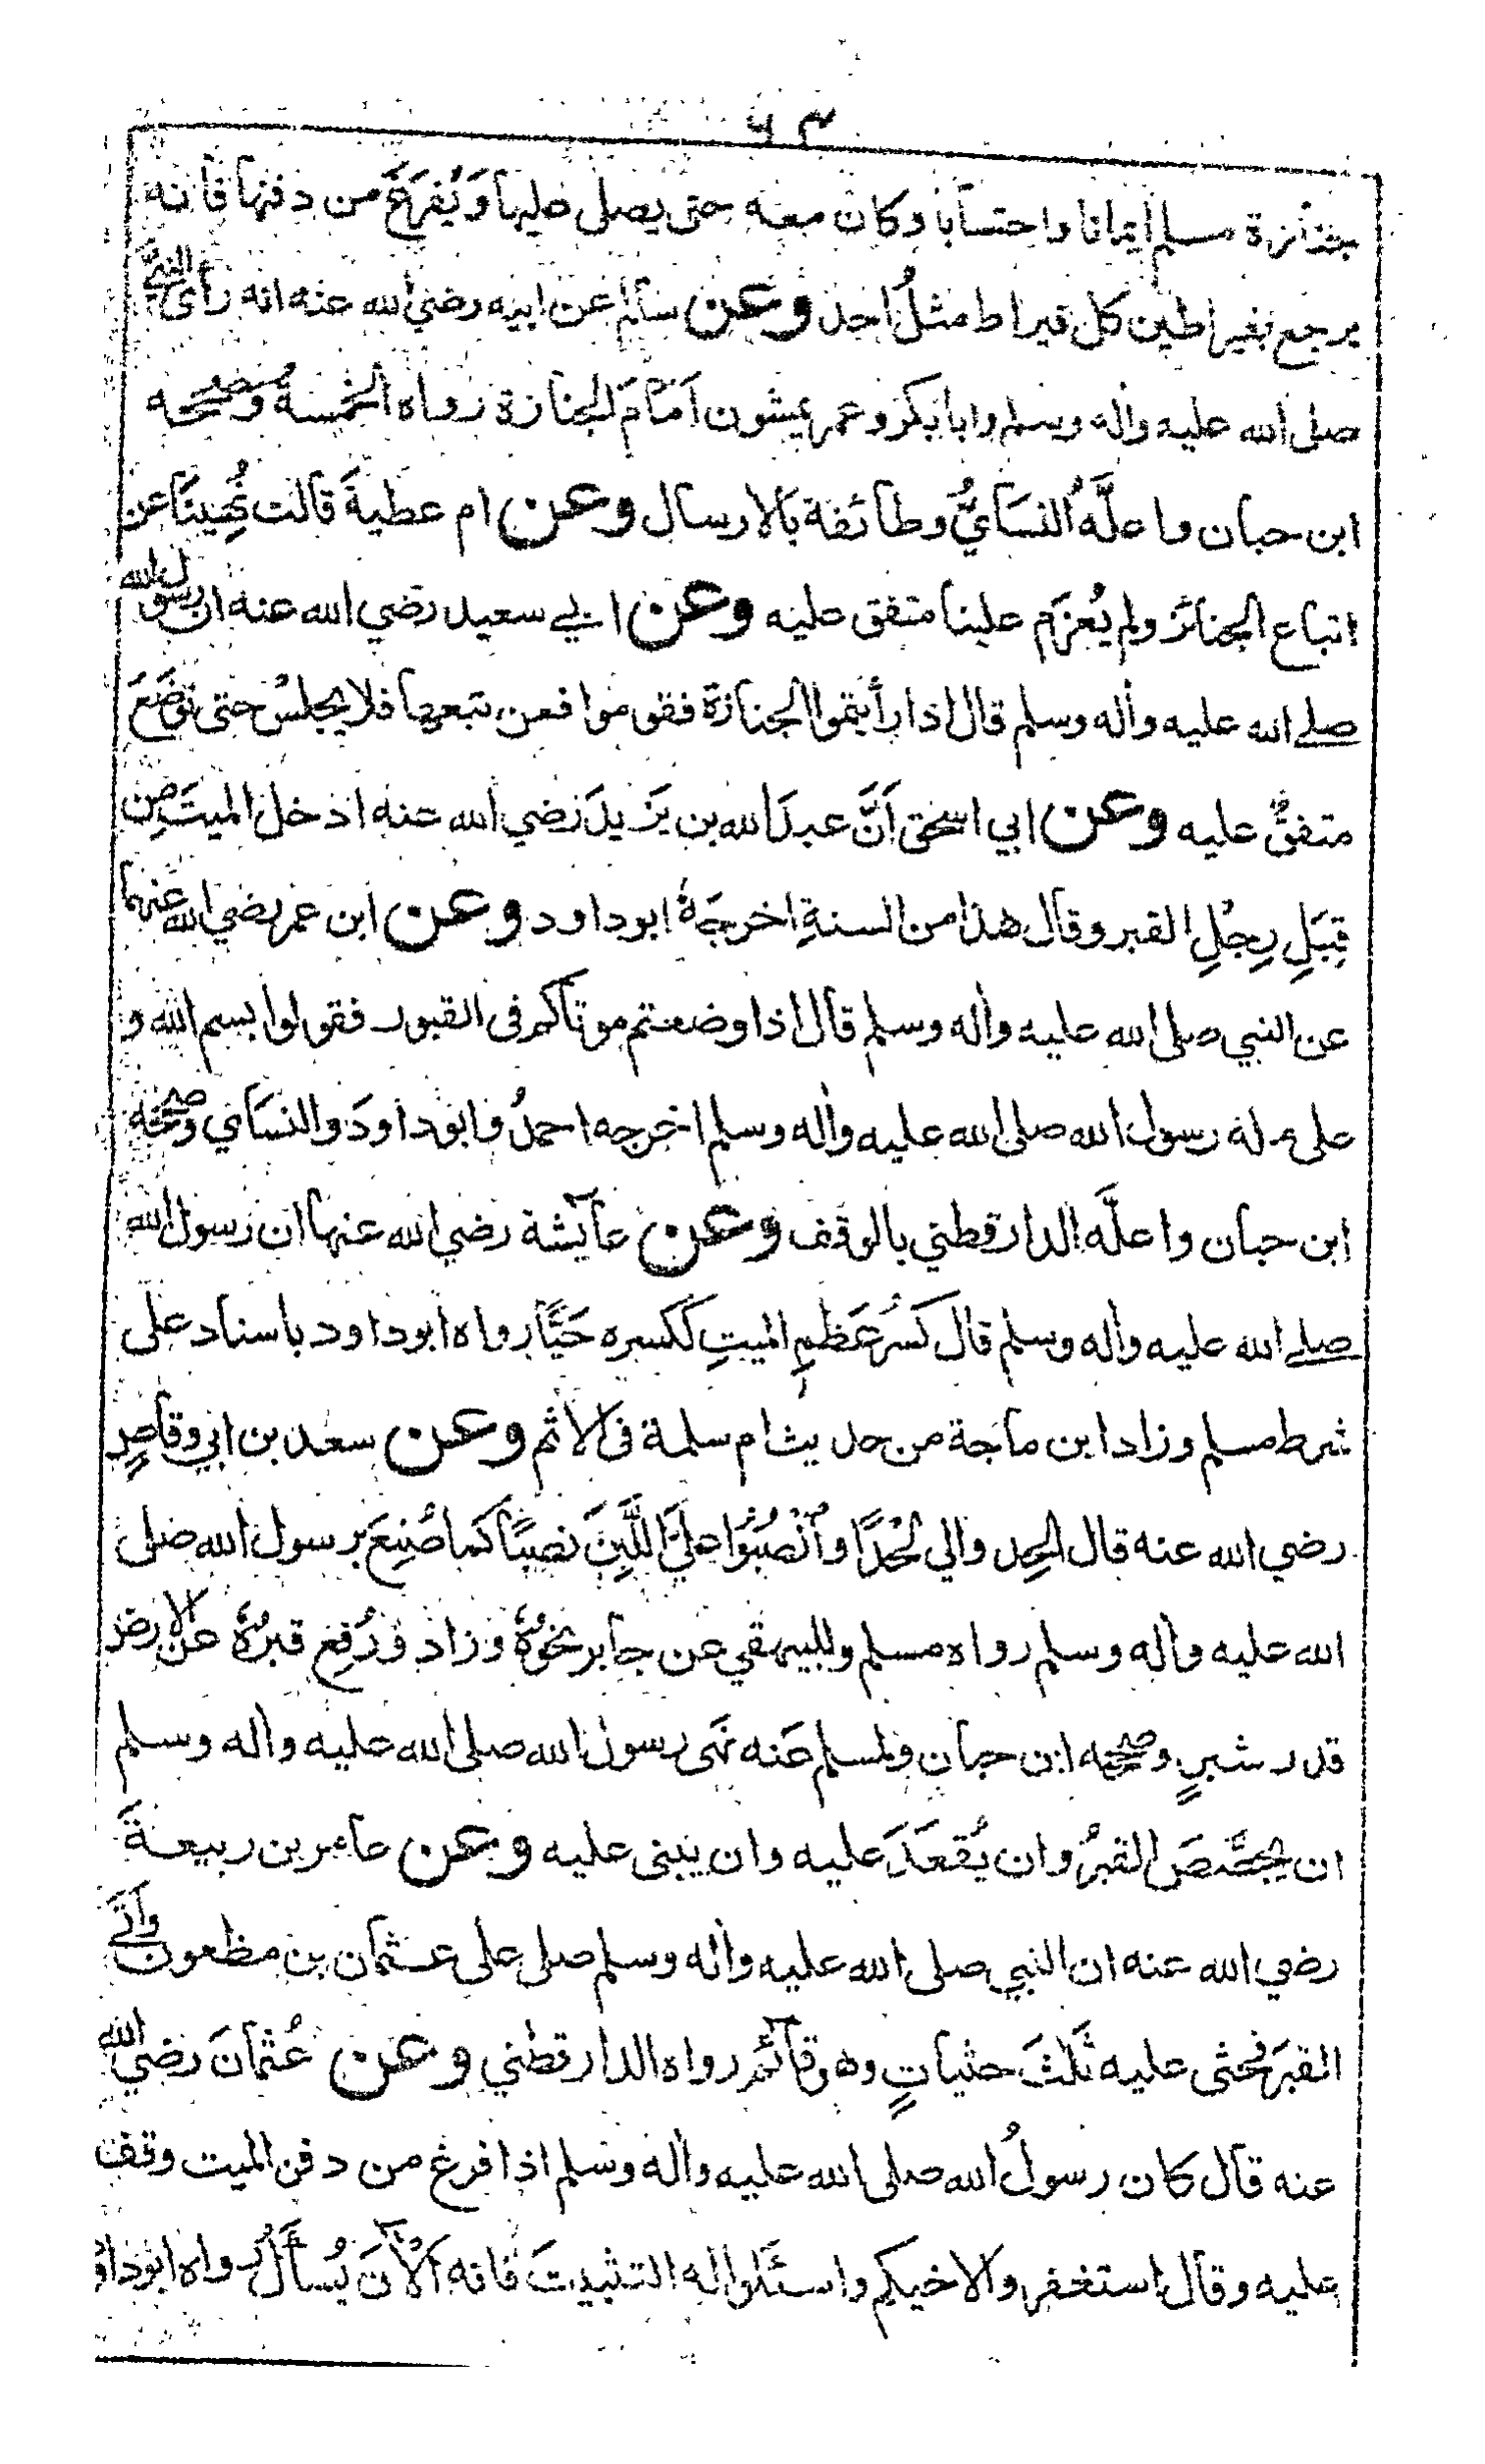 ٦٣
جنازة مسلم إيمانا واحتسابا وكان معه حتى يصلى عليها وَيُفرَغَ من دفنها فانه
يرجع بقيراطين كل قيراط مثلُ احد وعن سالم عن ابيه رضي الله عنه انه رأى النبيَّ
صلى الله عليه واٰله وسلم وابا بكر وعمر يمشون اَمَامَ الجنازة رواه الخمسة وصححه
ابن حبان واعلَّه النسَايُّ وطائفة بالارسال وعن ام عطيةَ قالت نُهِينَا عن
اتباع الجنائز ولم يُعزَم علينا متفق عليه وعن ابي سعيد رضي الله عنه ان رسول الله
صلى الله عليه واٰله وسلم قال اذا رأيتموا الجنازة فقوموا فمن تبعها فلا يجلسْ حتى توضَعَ
متفقٌ عليه وعن ابي اسحٰق اَنَّ عبدَ الله بن يَزيدَ رضي الله عنه ادخل الميتَ مِن
قِبَلِ رِجْلِ القبر وقال هذا من السنةِ اخرجَهُ ابوداود وعن ابن عمر رضي الله عنهما
عن النبي صلى الله عليه واٰله وسلم قال اذا وضعتم موتاكم فى القبور فقولوا بسم الله و
على ملة رسول الله صلى الله عليه واٰله وسلم اخرجه احمدُ وابوداودَ والنسَاي وصححه
ابن حبان واعلَّه الدارقطني بالوقف وعن عآيشة رضي الله عنها ان رسول الله
صلى الله عليه واٰله وسلم قال كَسْرُ عَظمِ الميتِ ككسره حَيًّا رواه ابوداود باسناد على
شرط مسلم وزاد ابن ماجة من حديث ام سلمة فى الاثم وعن سعد بن ابي وقاصٍ
رضي الله عنه قال الحِدوالي لَحْدًا وَاَنْصِبُوْا عليَّ اللَّبِنَ نصبًا كما صُنِعَ برسول الله صلى
الله عليه واٰله وسلم رواه مسلم وللبيهقي عن جابر نحوُهٗ وزاد وَرُفِع قبرُهٗ عن الارض
قدر شبرٍ وصححه ابن حبان ولمسلم عَنه نَهى رسول الله صلى الله عليه واٰله وسلم
ان يجصَّصَ القبرُ وان يُقعَدَ عليه وان يبنى عليه وعن عامر بن ربيعةَ
رضي الله عنه ان النبي صلى الله عليه واٰله وسلم صلى على عثمان بن مظعون واَتَى
القبرَ فحثى عليه ثَلٰثَ حثياتٍ وهو قآئم رواه الدارقطني وعن عُثمانَ رضي الله
عنه قال كان رسولُ الله صلى الله عليه واٰله وسلم اذا فرغ من دفن الميت وقف
عليه وقال استغفروا لاخيكم واسئَلوا له التثبيتَ فانه اَلآنَ يُسأَلُ رواه ابوداود